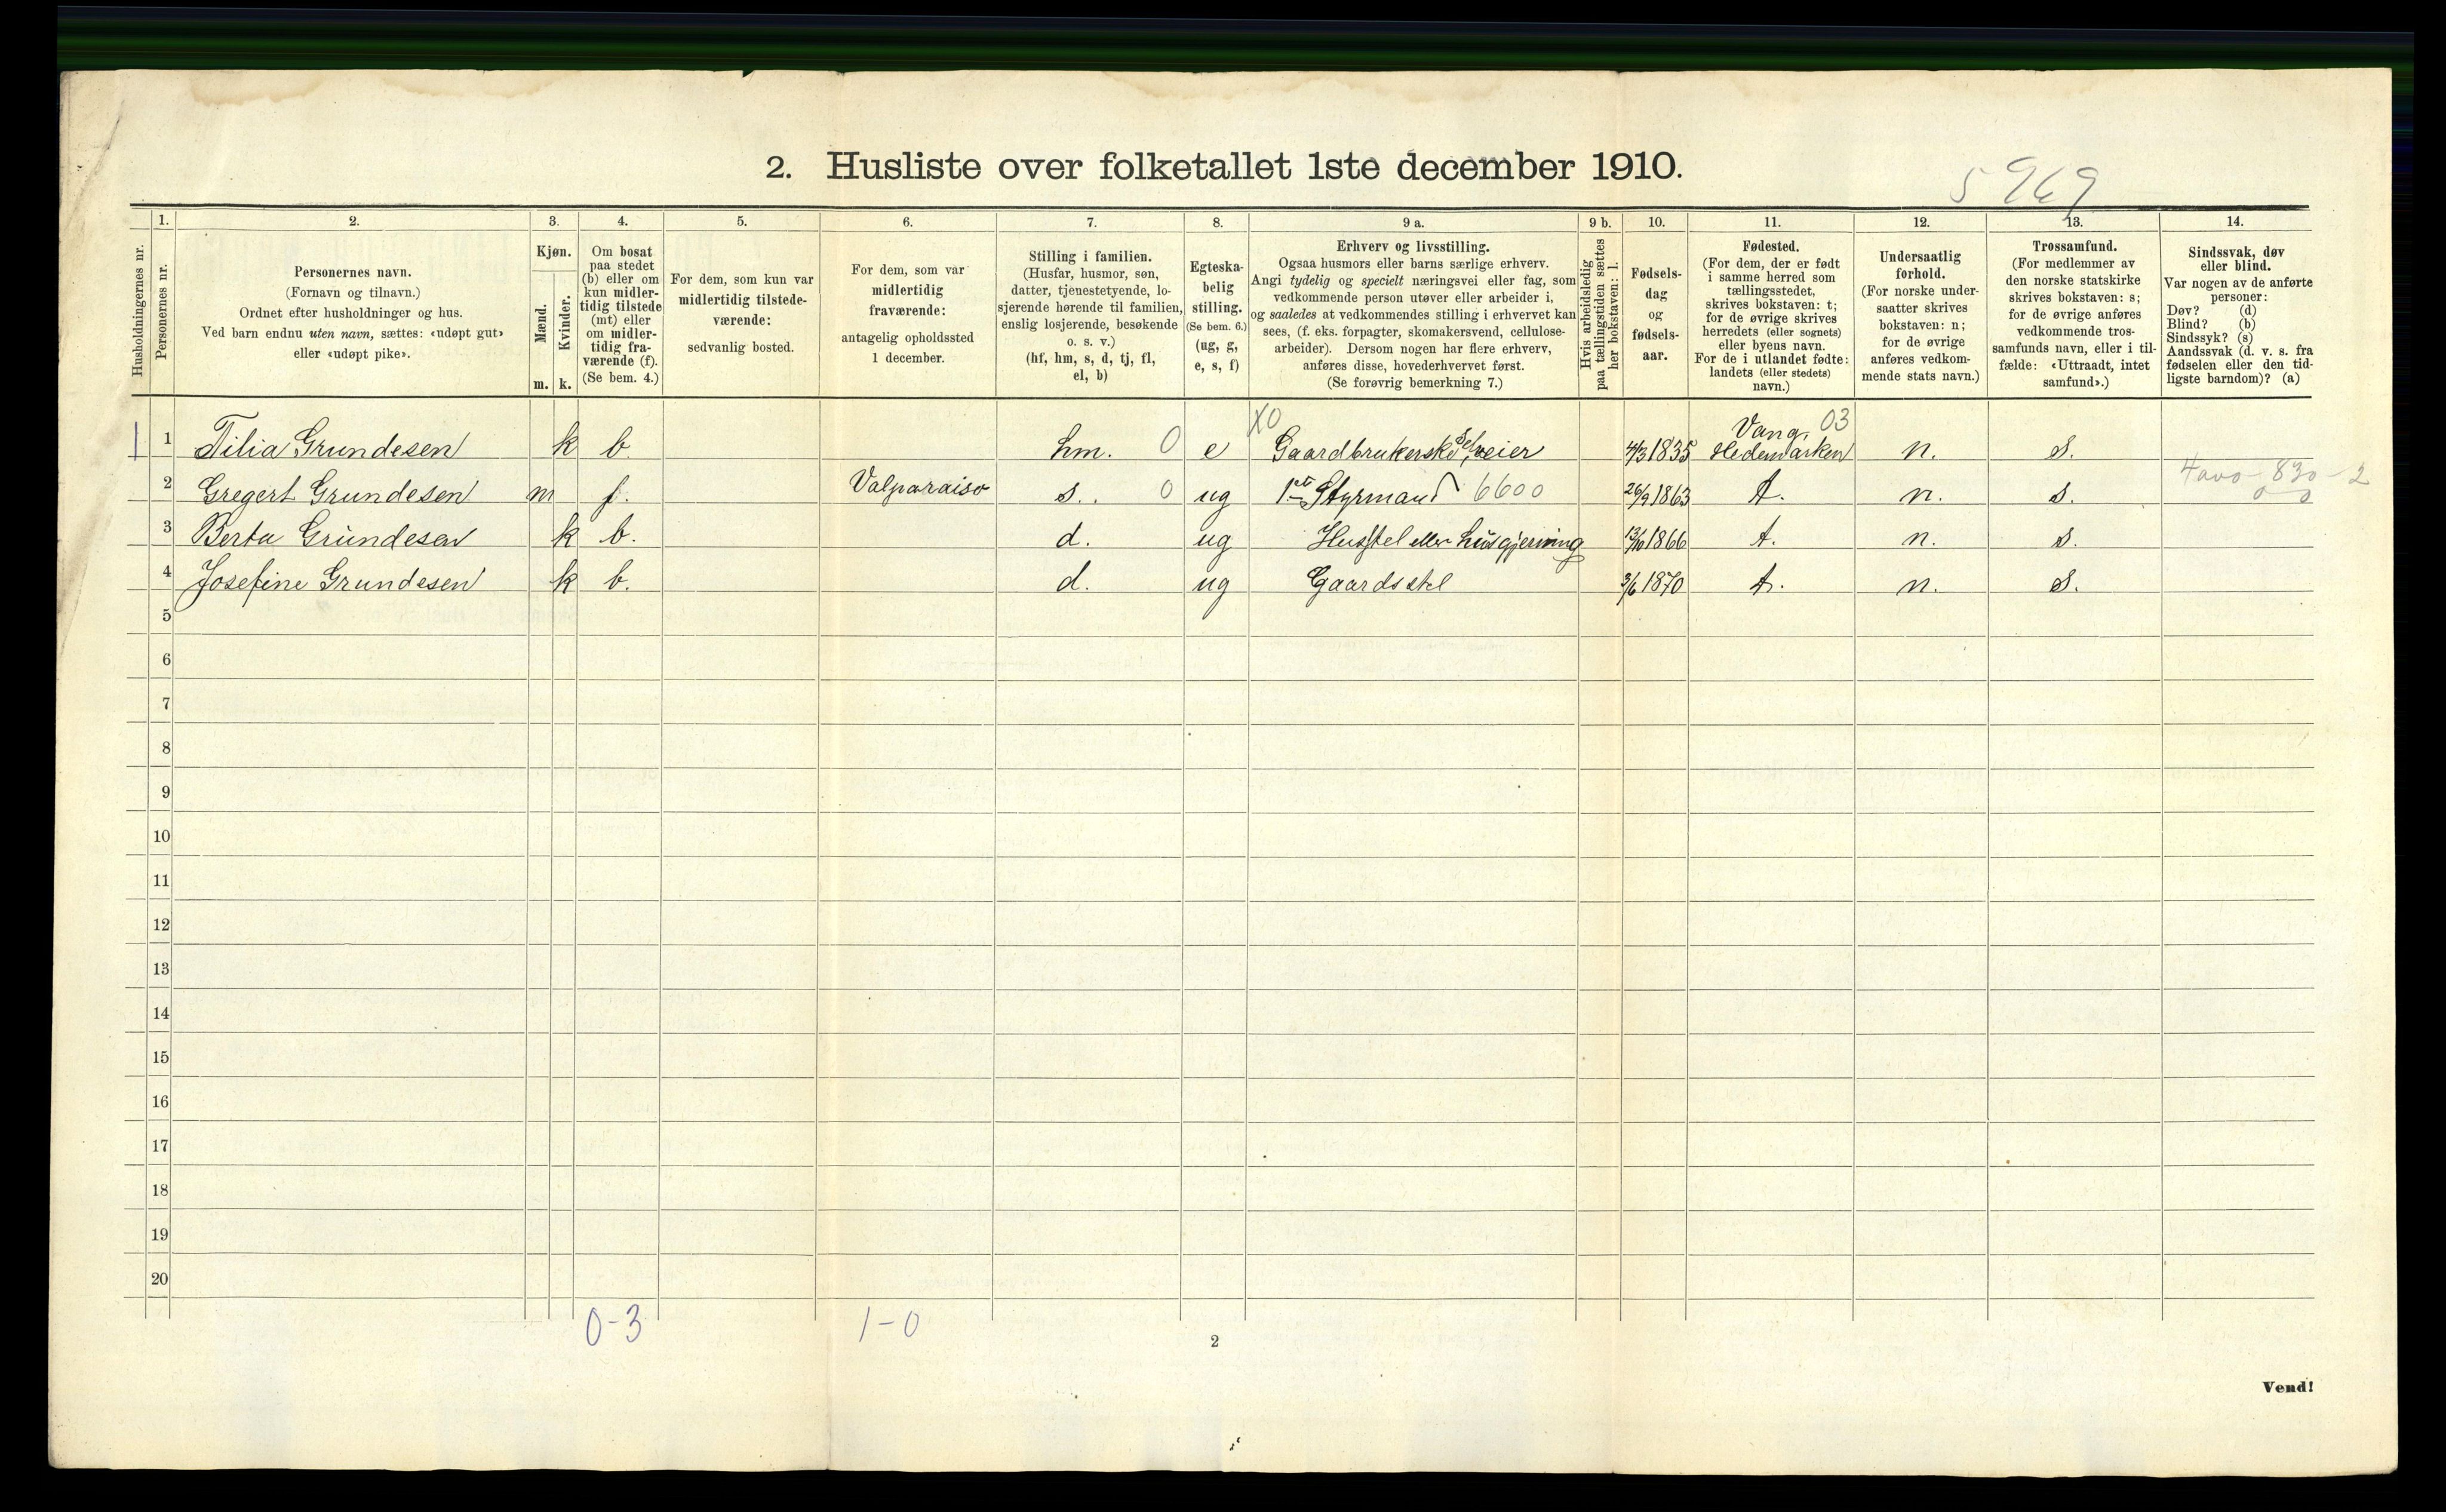 2. Husliste over folketallet 1ste december 1910.
5969
Husholdningernes nr.
1.
Personernes nr.
2.
Personernes navn.
(Fornavn og tilnavn.)
Ordnet efter husholdninger og hus.
Ved barn endnu uten navn, sættes: «udøpt gut»
eller «udøpt pike».
3.
Kjøn.
Mænd.
Kvinder.
m. k.
4.
Om bosat
paa stedet
(b) eller om
kun midler-
tidig tilstede
(mt) eller
om midler-
tidig fra-
værende (f).
(Se bem. 4.)
5.
For dem, som kun var
midlertidig tilstede-
værende:
sedvanlig bosted.
6.
For dem, som var
midlertidig
fraværende:
antagelig opholdssted
1 december.
7.
Stilling i familien.
(Husfar, husmor, søn,
datter, tjenestetyende, lo-
sjerende hørende til familien,
enslig losjerende, besøkende
o. s. v.)
(hf, hm, s, d, tj, fl,
el, b)
8.
Egteska-
belig
stilling.
(Se bem. 6.)
(ug, g,
e, s, f)
9 a.
Erhverv og livsstilling.
Ogsaa husmors eller barns særlige erhverv.
Angi tydelig og specielt næringsvei eller fag, som
vedkommende person utøver eller arbeider i,
og saaledes at vedkommendes stilling i erhvervet kan
sees, (f. eks. forpagter, skomakersvend, cellulose-
arbeider). Dersom nogen har flere erhverv,
anføres disse, hovederhvervet først.
(Se forøvrig bemerkning 7.)
9 b.
Hvis arbeidsledig
paa tællingstiden sættes
her bokstaven: l.
10.
Fødsels-
dag
og
fødsels-
aar.
11.
Fødested.
(For dem, der er født
i samme herred som
tællingsstedet,
skrives bokstaven: t;
for de øvrige skrives
herredets (eller sognets)
eller byens navn.
For de i utlandet fødte:
landets (eller stedets)
navn.)
12.
Undersaatlig
forhold.
(For norske under-
saatter skrives
bokstaven: n;
for de øvrige
anføres vedkom-
mende stats navn.)
13.
Trossamfund.
(For medlemmer av
den norske statskirke
skrives bokstaven: s;
for de øvrige anføres
vedkommende tros-
samfunds navn, eller i til-
fælde: «Uttraadt, intet
samfund».)
14.
Sindssvak, døv
eller blind.
Var nogen av de anførte
personer:
Døv? (d)
Blind? (b)
Sindssyk? (s)
Aandssvak (d. v. s. fra
fødselen eller den tid-
ligste barndom)? (a)
X0 Vang, 03
1 1 Tilia Grundesen k b. hm. 0 e Gaardbrukerske, Selveier 4/3 1835 Hedemarken n. s.
2 Gregert Grundesen m f. Valparaiso s. 0 ug 1ste Styrmand 6600 26/9 1863 t. n. s. 830-2
3 Berta Grundesen k b. d. ug Husstel eller husgjerning 13/10 1866 t. n. s.
4 Josefine Grundesen k b. d. ug Gaardsstel 3/6 1870 t. n. s.
5
6
7
8
9
10
11
12
13
14
15
16
17
18
19
20
0-3 1-0
2
Vend!